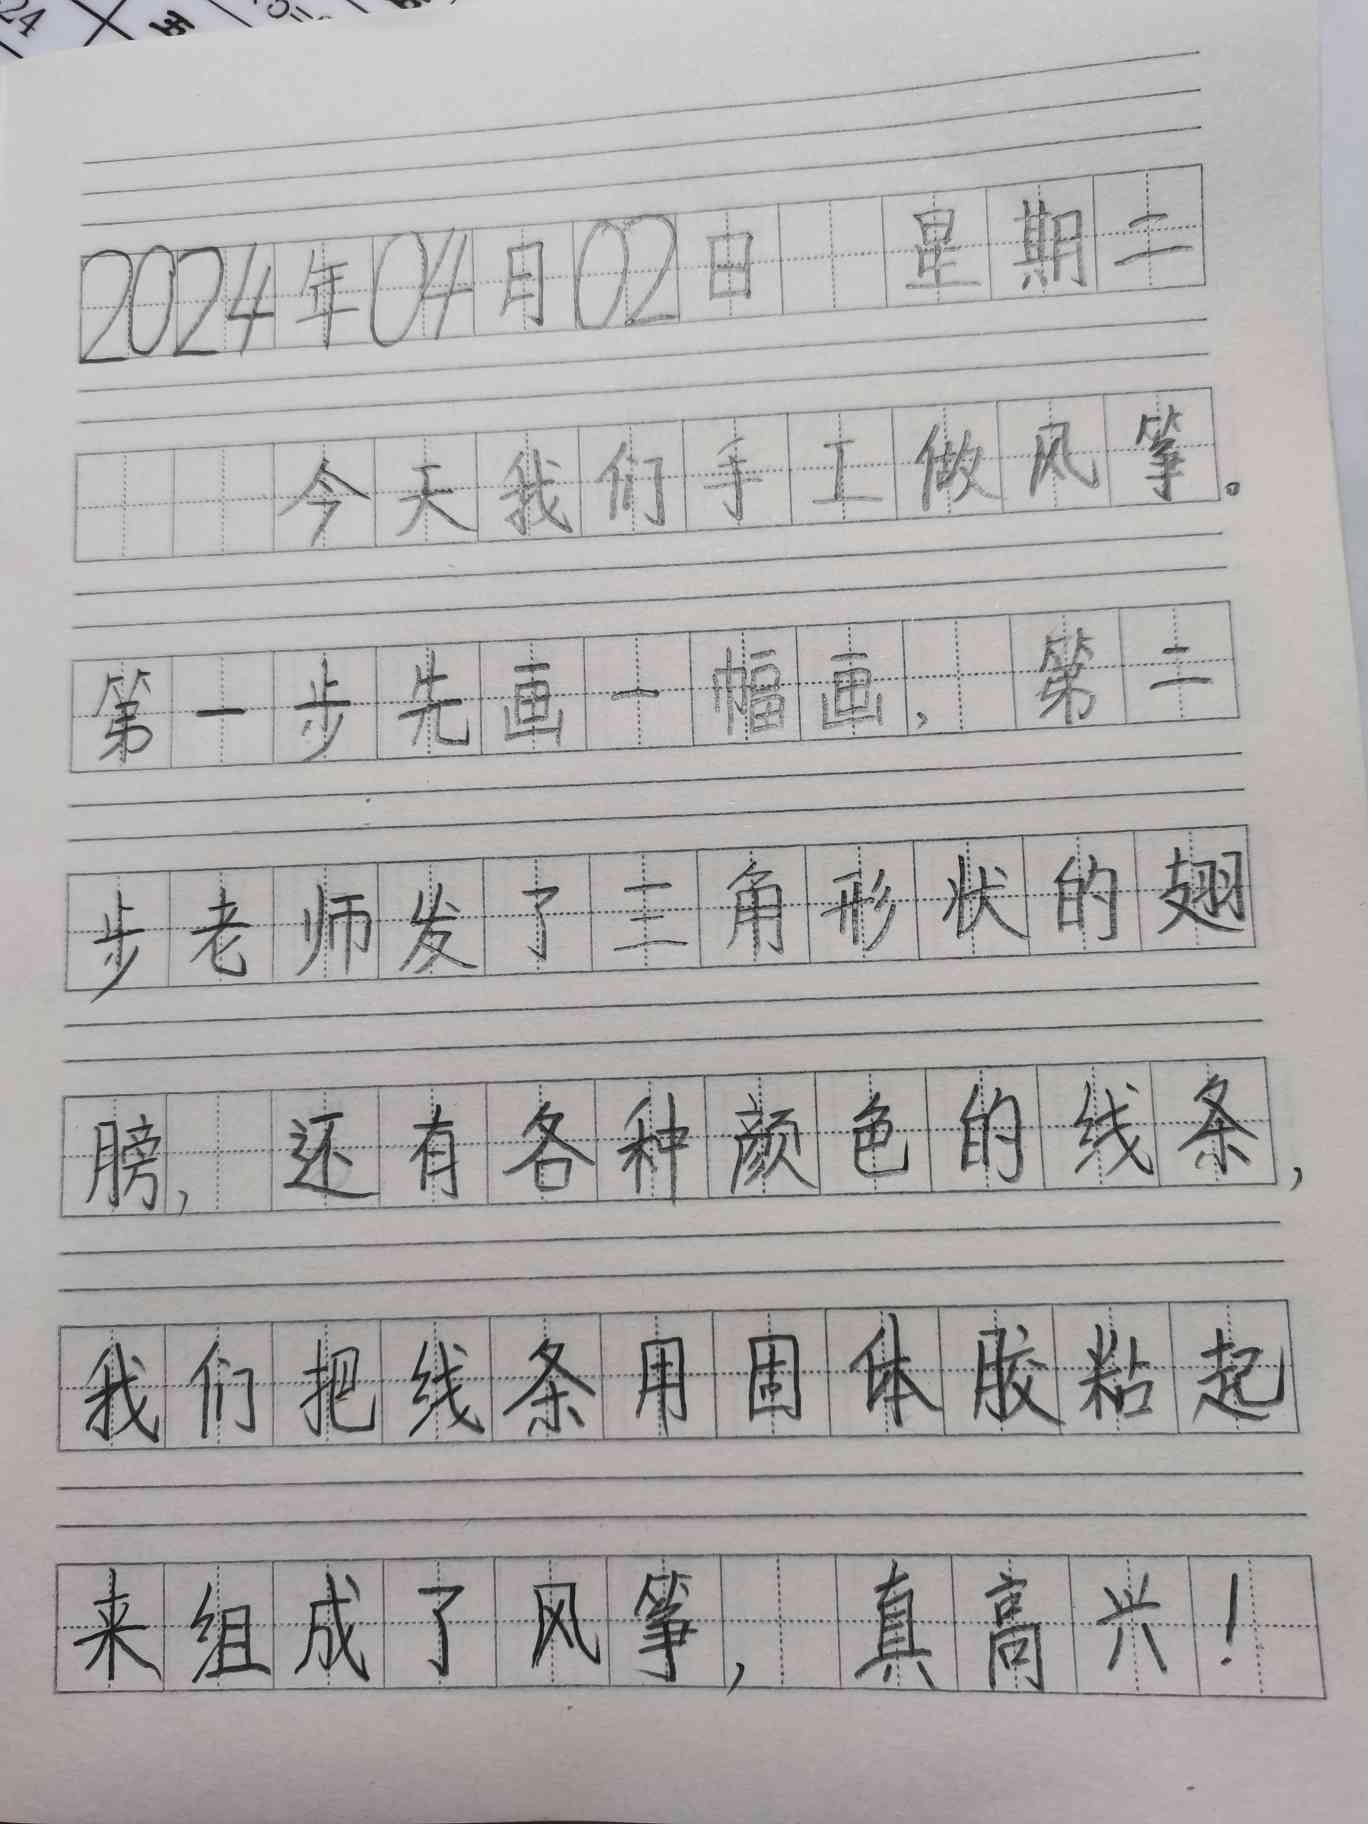 24
2024年04月02日 星期二
今天我们手工做风筝。
第一步先画一幅画，第二
步老师发了三角形状的翅
膀，还有各种颜色的线条，
我们把线条用固体胶粘起
来组成了风筝，真高兴！